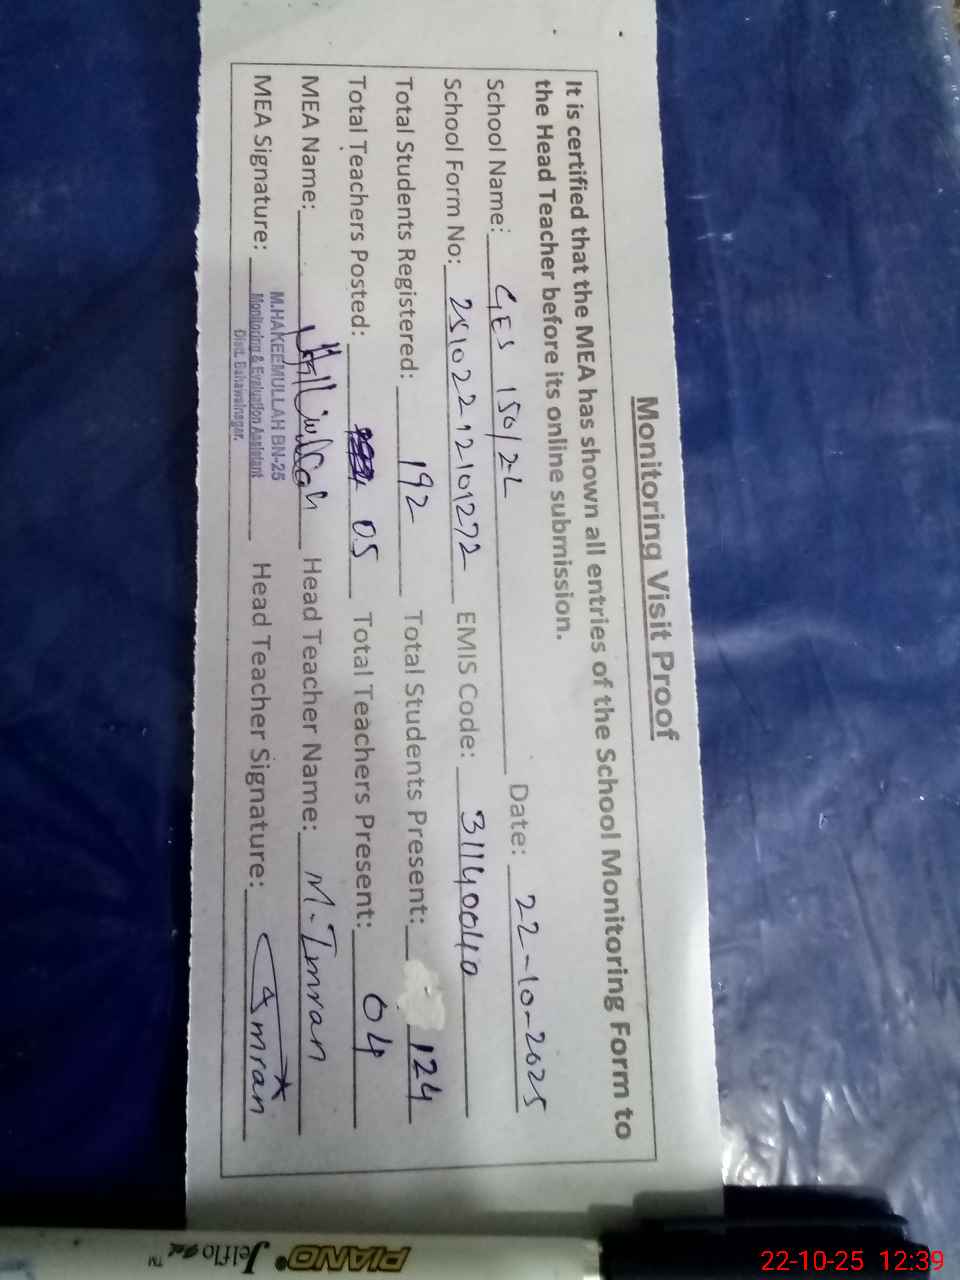 Monitoring Visit Proof
It is certified that the MEA has shown all entries of the School Monitoring Form to
the Head Teacher before its online submission.
School Name: GES 150/2L Date: 22-10-2025
School Form No: 25102212101272 EMIS Code: 31140040
Total Students Registered: 192 Total Students Present: 124
Total Teachers Posted: 05 Total Teachers Present: 04
MEA Name: Head Teacher Name: M. Imran
MEA Signature: Head Teacher Signature: Imran
M.HAKEEMULLAH BN-25
Monitoring & Evaluation Assistant
Distt. Bahawalnagar.
PIANO® Jelflo Gel ™
22-10-25 12:39